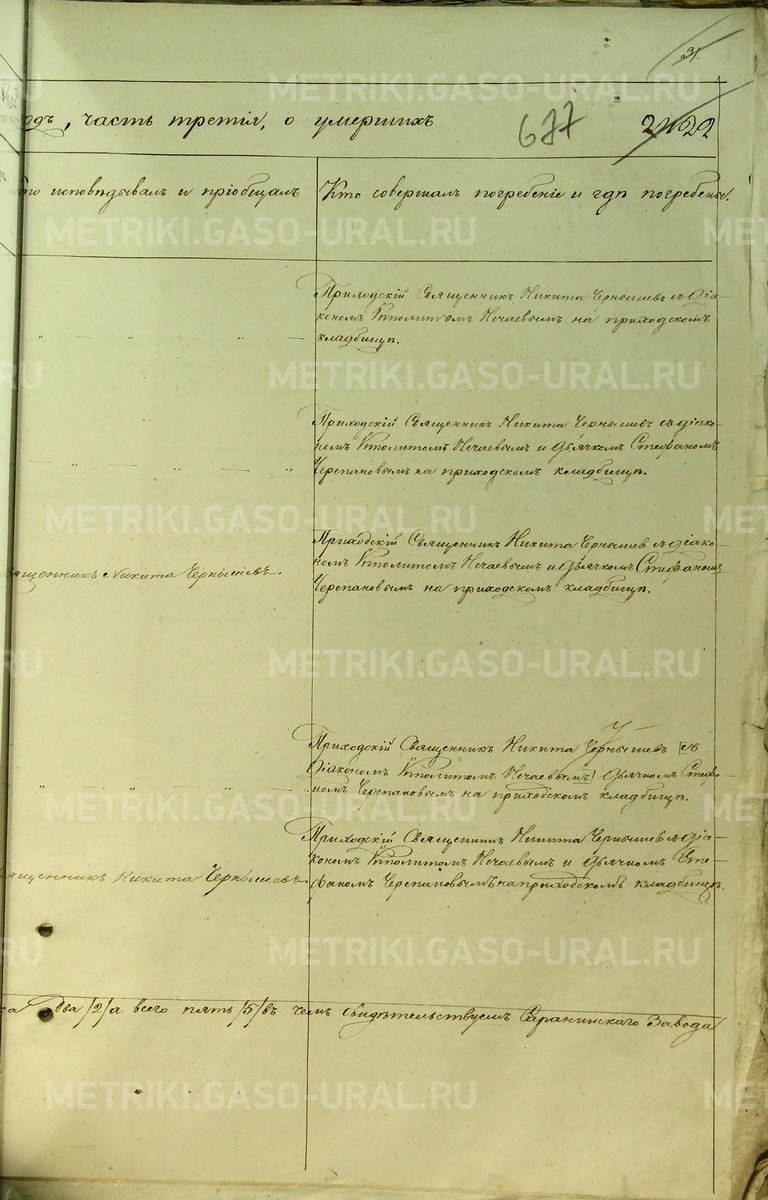 31.
одъ, часть третія, о умершихъ
677
2422
то исповѣдывалъ и пріобщалъ
Кто совершалъ погребеніе и гдѣ погребены.
Приходскій Священникъ Никита Чернышевъ съ діа-
кономъ Ипполитомъ Нечаевымъ на приходскомъ
кладбищѣ.
Приходскій Священникъ Никита Чернышевъ съ діако-
номъ Ипполитомъ Нечаевымъ и дьячкомъ Стефаномъ
Черепановымъ на приходскомъ кладбищѣ.
Приходскій Священникъ Никита Чернышев съ діако-
номъ Ипполитомъ Нечаевымъ и дьячкомъ Стефаномъ
Черепановымъ на приходскомъ кладбищѣ.
вященникъ Никита Чернышевъ.
Приходскій Священникъ Никита Чернышевъ съ
Діакономъ Ипполитомъ Нечаевымъ дьячкомъ Стефа-
номъ Черепановымъ на приходскомъ кладбищѣ.
Приходскій Священникъ Никита Чернышев съ діа-
кономъ Ипполитомъ Нечаевымъ и дьячкомъ Сте-
фаномъ Черепановымъ на приходскомъ кладбищѣ.
вященникъ Никита Чернышевъ
два /2/ а всего пять /5/ въ чемъ свидѣтельствуемъ Саранинскаго Завода
METRIKI.GASO-URAL.RU